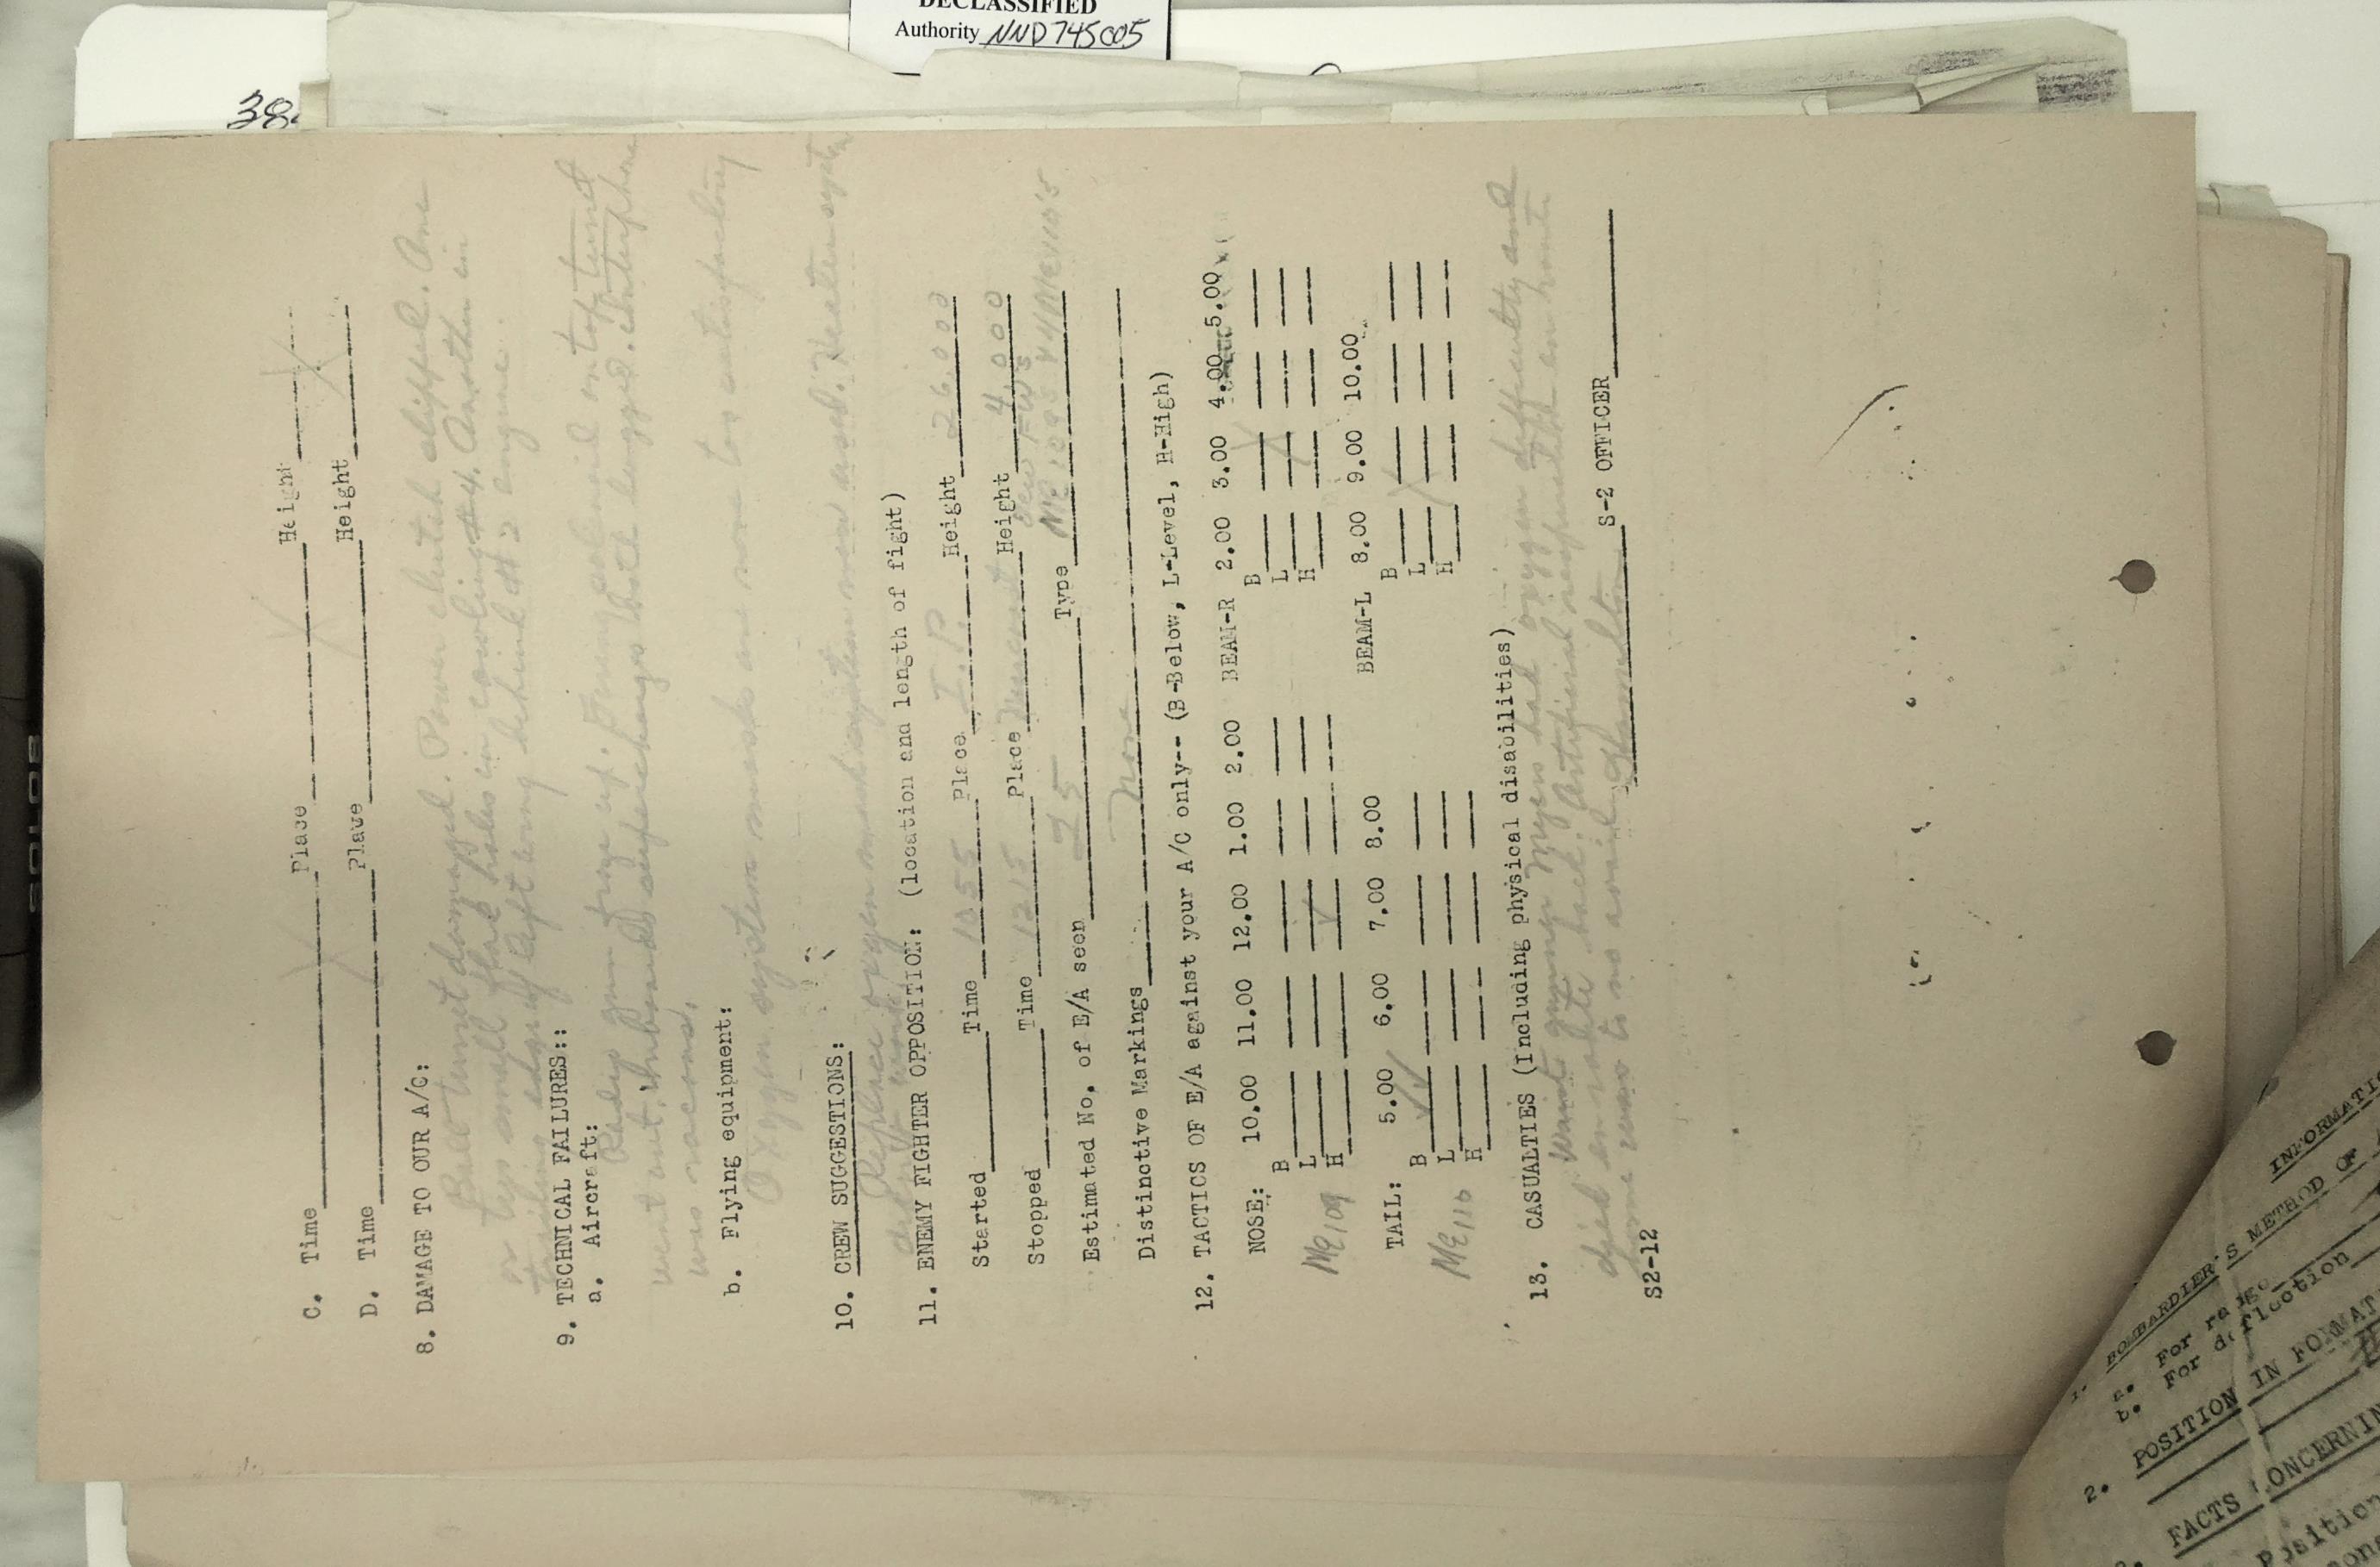 DECLASSIFIED
Authority NND745005
38
C. Time Place Height
D. Time Place Height
8. DAMAGE TO OUR A/C:
Ball turret damaged. Power clutch slipped. One
or two small flak holes in cowling #4. Another in
trailing edge of left wing behind #2 engine.
9. TECHNICAL FAILURES::
a. Aircraft: Radio gun froze up. solenoid on top turret
went out. Inboard superchargers both lagged. Interphone
was
b. Flying equipment:
Oxygen system made are none too satisfactory
10. CREW SUGGESTIONS:
Replace oxygen system now used. Heater system
11. ENEMY FIGHTER OPPOSITION: (location and length of fight)
Started Time 1055 Place I.P. Height 26,000
Stopped Time 1215 Place Height 4,000
Estimated No, of E/A seen 75 Type Few FW's Me 109s
Distinctive Markings None
12. TACTICS OF E/A against your A/C only-- (B-Below, L-Level, H-High)
NOSE: 10.00 11.00 12.00 1.00 2.00 BEAM-R 2.00 3.00 4.00 5.00
B B
L L
Me 109 H H
TAIL: 5.00 6.00 7.00 8.00 BEAM-L 8.00 9.00 10.00
B B
L L
Me 110 H H
13. CASUALTIES (Including physical disabilities)
Waist gunner Myers had oxygen difficulty and
died en route back. Artificial respiration en route
home was to no avail.
S-2 OFFICER
S2-12
INFORMATI
1. BOMBARDIER'S METHOD OF
a. For range
b. For deflection
2. POSITION IN FORMAT
FACTS CONCERNIN
Position